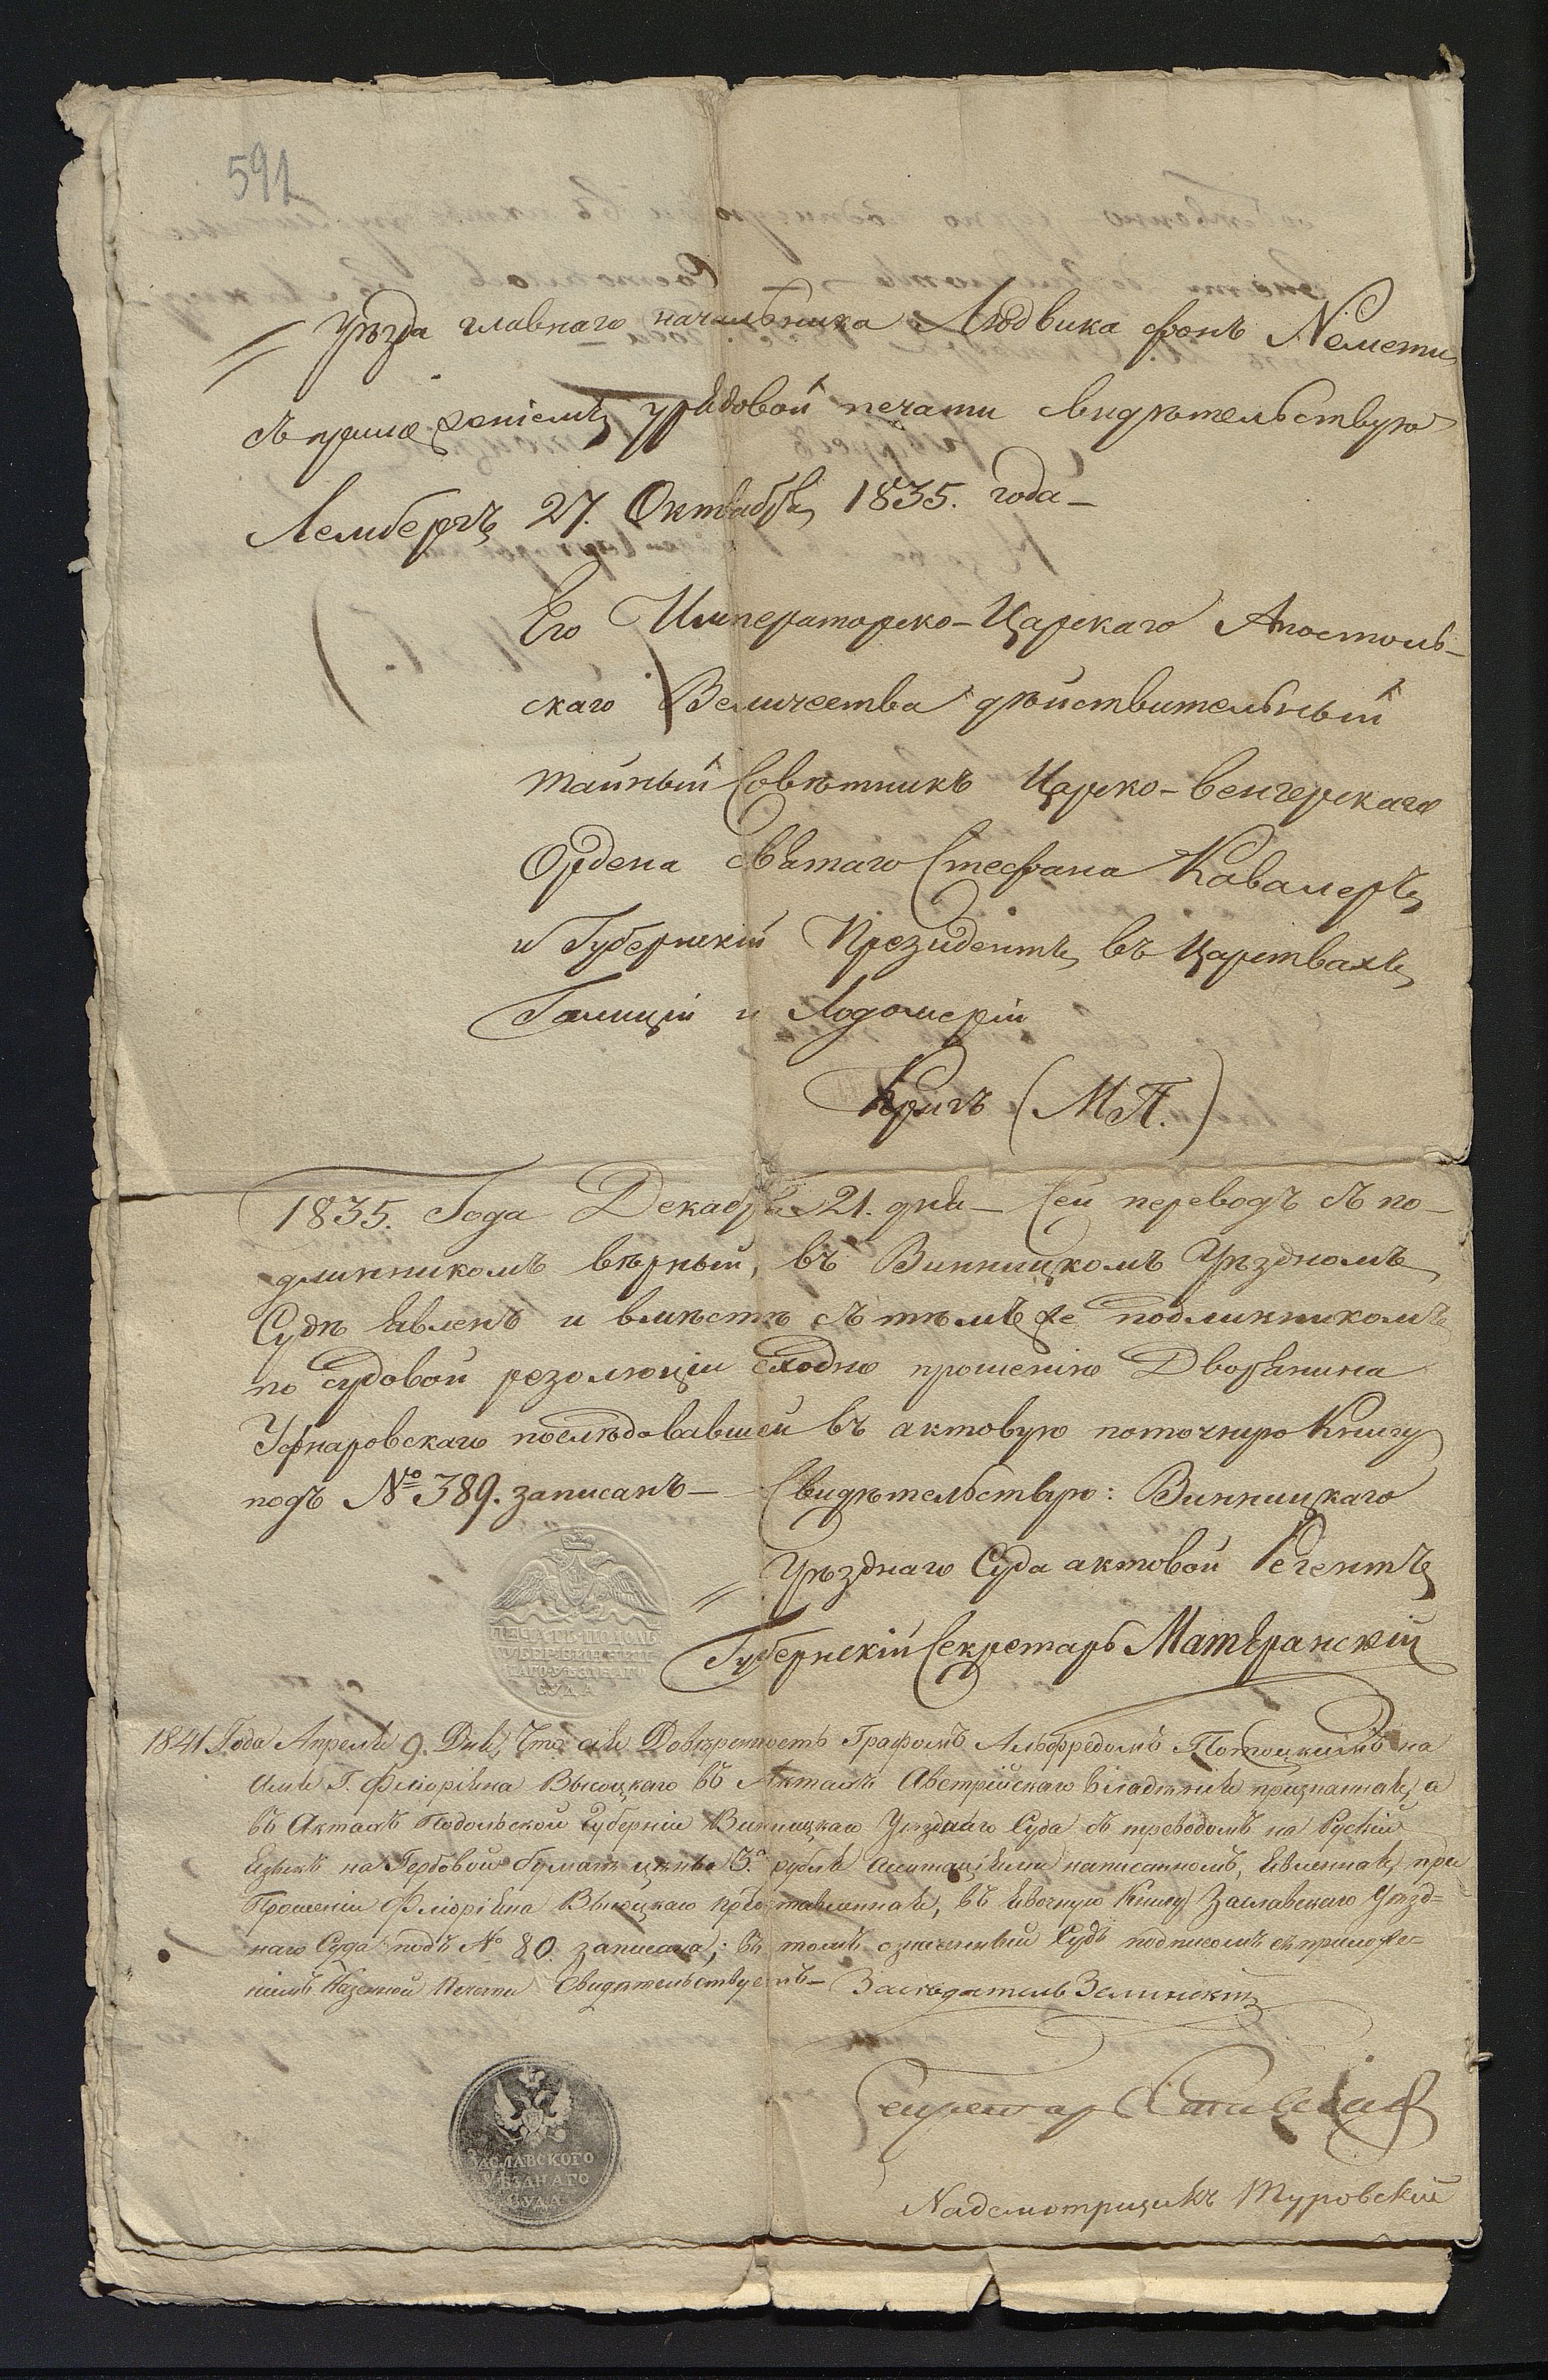 591
Уѣзда главнаго начальника Людвика фонъ Nемети
съ приложеніемъ урядовой печати свидѣтельствую
Лембергъ 27. Октября 1835. года —
Его Императорско-Царскаго Апостоль-
скаго Величества дѣйствительный
тайный Совѣтникъ Царско-венгерскаго
Ордена святаго Стефана Кавалеръ
и Губернскій Президентъ въ Царствахъ
Галиціи и Лодомеріи
Кригъ (М.П.)
1835. Года Декабря 21. дня — Сей переводъ съ по-
длинникомъ вѣрный, въ Винницкомъ Уѣздномъ
Судѣ явленъ и вмѣстѣ съ тѣмъ же подлинникомъ
по судовой резолюціи сходно прошенію Дворянина
Уфнаровскаго послѣдовавшей въ актовую поточную Книгу
подъ № 389. записанъ — Свидѣтельствую: Винницкаго
Уѣзднаго Суда актовой Регентъ
Губернскій Секретарь Матеранскій
ПЕЧАТЬ ПОДОЛЬ
ГУБЕР: ВИННИЦ
КАГО УѢЗДНАГО
СУДА
1841 Года Апреля 9. Дня, Что сія Довѣренность Графомъ Альфредомъ Потоцкимъ на
имя Г. Флоріяна Высоцкаго въ Актахъ Австрійскаго владѣнія признанная, а
въ Актахъ Подольской Губерніи Винницкаго Уѣзднаго Суда съ переводомъ на Рускій
языкъ на Гербовой бумагѣ цѣною 3. рубля ассигнаціями написанномъ, явленная, при
Прошеніи Флоріяна Высоцкаго представленная, въ явочную Книгу Заславскаго Уѣзд=
наго Суда подъ № 80. записана; въ томъ означенный Судъ подписомъ съ приложе-
ніемъ Казенной Печати Свидѣтельствуетъ — Засѣдатель Зелинскій
Секретарь
ЗАСЛАВСКОГО
УѢЗДНАГО
СУДА
Nадсмотрщикъ Туровскій